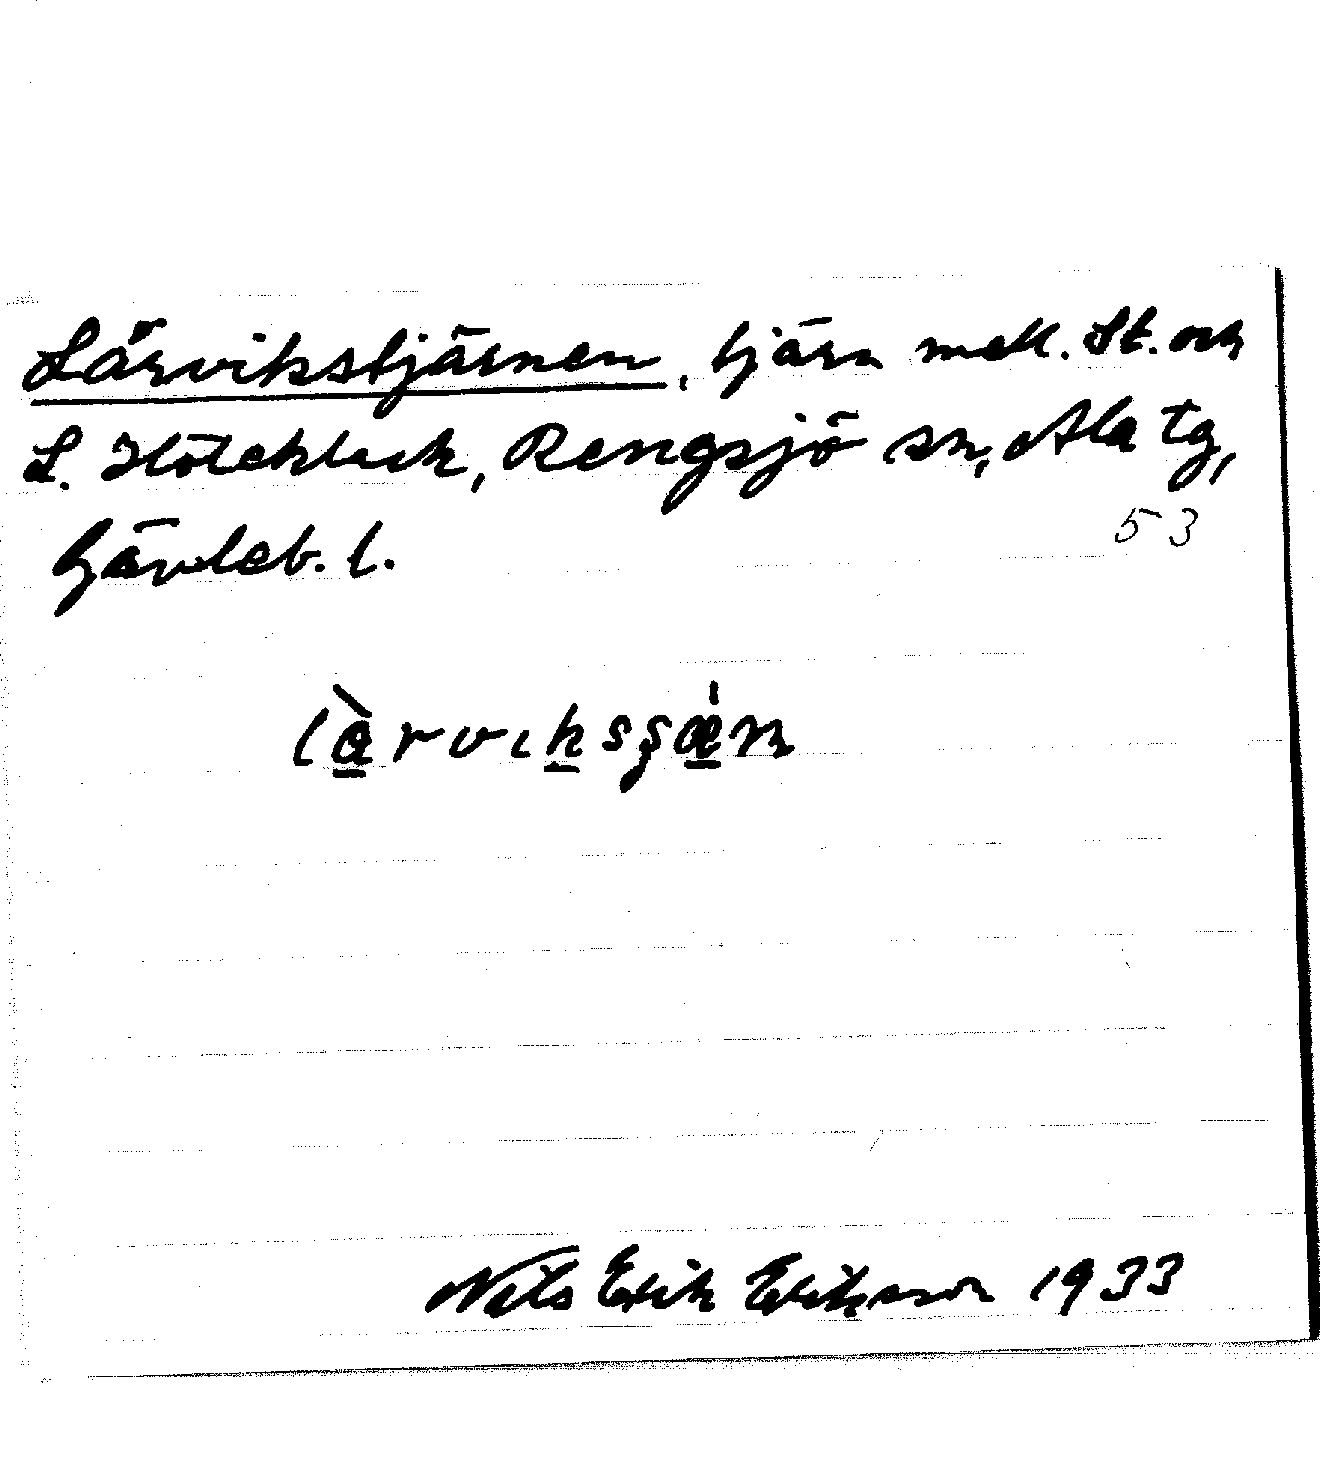 Lårvikstjärnen, tjärn mell. St. och
L. Hötekluck, Rengsjö sn, Ala tg,
Gävleb. l.
53
Nils Erik Eriksson 1933